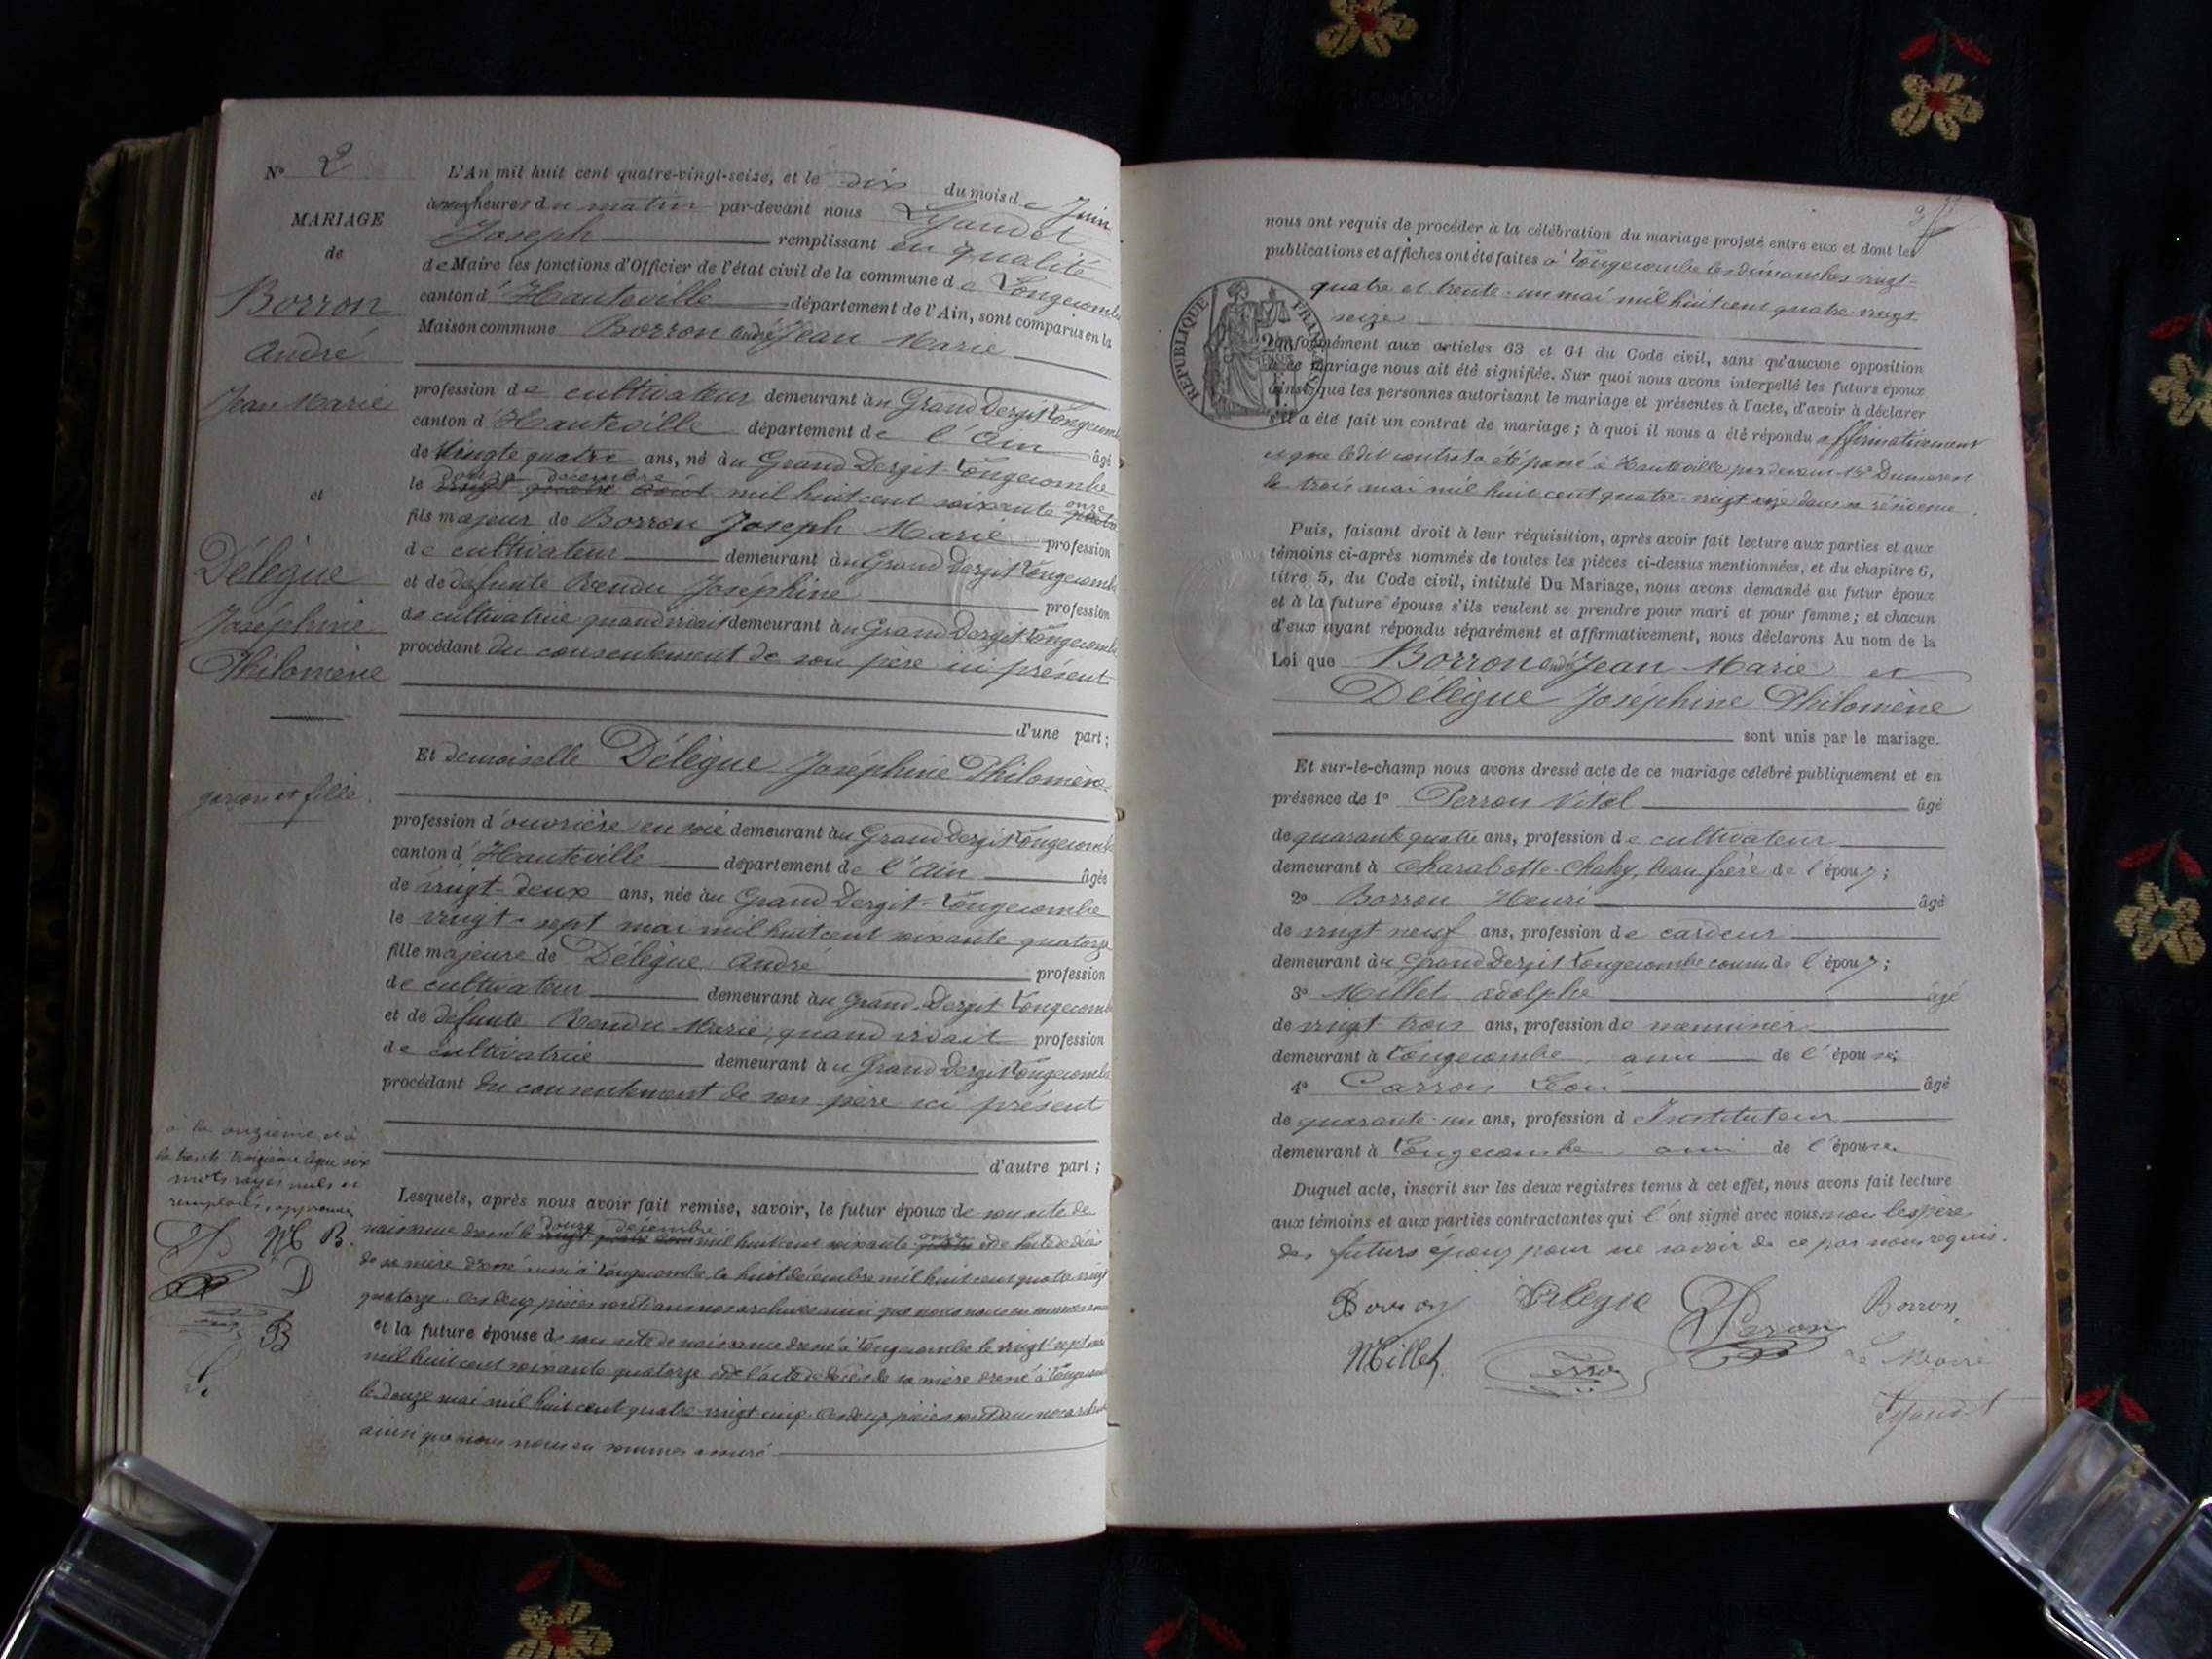 N° 2
MARIAGE
de
Borron
André
Jean Marie
et
Délègue
Joséphine
Philomène
garçon et fille.
à la onzième et à
la trente troisième ligne six
mots rayés nuls et
remplacés, approuvés
M B.
D
B
L'An mil huit cent quatre-vingt-seize, et le dix du mois de Juin
à heures du matin par-devant nous Lyaudet
Joseph remplissant en qualité
de Maire les fonctions d'Officier de l'état civil de la commune de Longecombe
canton d'Hauteville département de l'Ain, sont comparus en la
Maison commune Borron André Jean Marie
profession de cultivateur demeurant au Grand Dergit Longecombe
canton d'Hauteville département de l'Ain âgé
de Vingt quatre ans, né au Grand Dergit-Longecombe
douze décembre onze
le vingt quatre août mil huit cent soixante quatre
fils majeur de Borron Joseph Marie profession
de cultivateur demeurant au Grand Dergit Longecombe
et de défunte Bendu Joséphine profession
de cultivatrice quand vivait demeurant au Grand Dergit Longecombe
procédant du consentement de son père ici présent
d'une part;
Et demoiselle Délègue Joséphine Philomène
profession d'ouvrière en soie demeurant au Grand Dergit Longecombe
canton d'Hauteville département de l'Ain âgée
de vingt-deux ans, née au Grand Dergit-Longecombe
le vingt-sept mai mil huit cent soixante-quatorze
fille majeure de Délègue André profession
de cultivateur demeurant au Grand-Dergit-Longecombe
et de défunte Bendu Marie, quand vivait profession
de cultivatrice demeurant au Grand Dergit Longecombe
procédant du consentement de son père ici présent
d'autre part;
Lesquels, après nous avoir fait remise, savoir, le futur époux de son acte de
douze décembre onze
naissance dressé le vingt quatre août mil huit cent soixante-quatre et de l'acte de décès
de sa mère dressé aussi à Longecombe le huit décembre mil huit cent quatre vingt
quatorze. Ces deux pièces sont dans nos archives ainsi que nous nous en sommes assuré
et la future épouse de son acte de naissance dressé à Longecombe le vingt-sept mai
mil huit cent soixante quatorze et de l'acte de décès de sa mère dressé à Longecombe
le douze mai mil huit cent quatre-vingt cinq. Ces deux pièces sont dans nos archives
ainsi que nous nous en sommes assuré
nous ont requis de procéder à la célébration du mariage projeté entre eux et dont les
publications et affiches ont été faites à Longecombe les dimanches vingt-
quatre et trente-un mai mil huit cent quatre-vingt
seize
RÉPUBLIQUE FRANÇAISE
conformément aux articles 63 et 64 du Code civil, sans qu'aucune opposition
à ce mariage nous ait été signifiée. Sur quoi nous avons interpellé les futurs époux
ainsi que les personnes autorisant le mariage et présentes à l'acte, d'avoir à déclarer
s'il a été fait un contrat de mariage; à quoi il nous a été répondu affirmativement
et que le dit contrat a été passé à Hauteville par devant Me Dumarest
le trois mai mil huit cent quatre-vingt seize dans sa résidence.
Puis, faisant droit à leur réquisition, après avoir fait lecture aux parties et aux
témoins ci-après nommés de toutes les pièces ci-dessus mentionnées, et du chapitre 6,
titre 5, du Code civil, intitulé Du Mariage, nous avons demandé au futur époux
et à la future épouse s'ils veulent se prendre pour mari et pour femme; et chacun
d'eux ayant répondu séparément et affirmativement, nous déclarons Au nom de la
Loi que Borron André Jean Marie et
Délègue Joséphine Philomène
sont unis par le mariage.
Et sur-le-champ nous avons dressé acte de ce mariage célébré publiquement et en
présence de 1° Perron Vital âgé
de quarante quatre ans, profession de cultivateur
demeurant à Charabotte-Chaley, beau frère de l'époux;
2° Borron Henri âgé
de vingt neuf ans, profession de cardeur
demeurant au Grand Dergit Longecombe cousin de l'époux;
3° Millet Adolphe âgé
de vingt trois ans, profession de menuisier
demeurant à Longecombe, ami de l'épouse;
4° Carron Léon âgé
de quarante-un ans, profession d'Instituteur
demeurant à Longecombe ami de l'épouse
Duquel acte, inscrit sur les deux registres tenus à cet effet, nous avons fait lecture
aux témoins et aux parties contractantes qui l'ont signé avec nous non les pères
des futurs époux pour ne savoir de ce par nous requis.
Borron Délègue Peron Borron
Millet Le Maire
Lyaudet